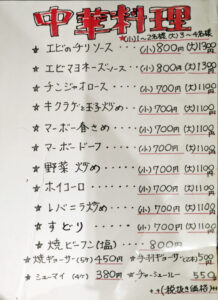 中華料理
(小)1~2名様 (大)3~4名様
★ エビのチリソース・・・(小)800円 (大)1300円
★ エビマヨネーズソース・・(小)800円 (大)1300円
★ チンジャオロース・・・(小)700円 (大)1100円
★ キクラゲと玉子炒め・・(小)700円 (大)1100円
★ マーボー春さめ・・・(小)700円 (大)1100円
★ マーボードーフ・・・(小)700円 (大)1100円
★ 野菜炒め・・・(小)700円 (大)1100円
★ ホイコーロ・・・(小)700円 (大)1100円
★ レバニラ炒め・・・(小)700円 (大)1100円
★ すどり・・・(小)700円 (大)1100円
★ 焼ビーフン(塩)・・・800円
★ 焼ギョーザ(5ケ) 450円 ★手羽ギョーザ(2本) 500円
★ シューマイ(4ケ) 380円 ★チャーシュー 550
(税抜き価格)